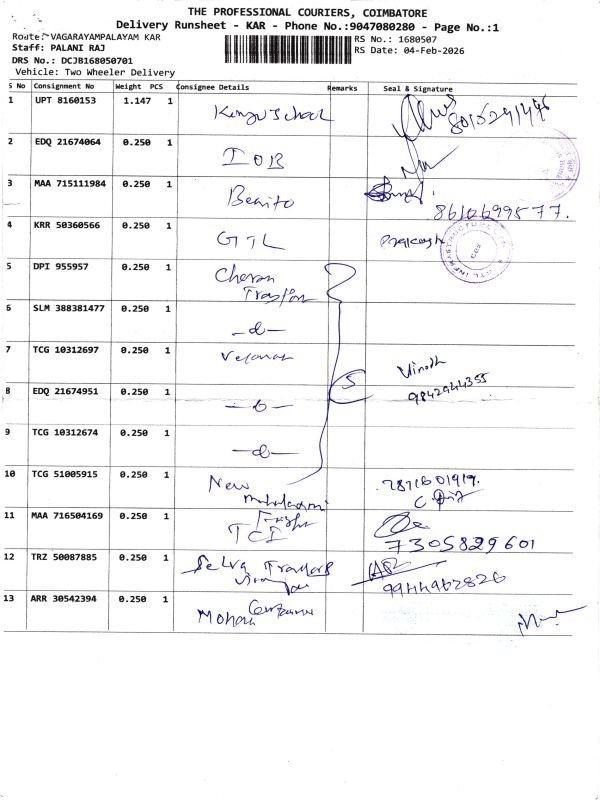 THE PROFESSIONAL COURIERS, COIMBATORE
Delivery Runsheet - KAR - Phone No.:9047080280 - Page No.:1
Route: VAGARAYAMPALAYAM KAR
RS No.: 1680507
Staff: PALANI RAJ
RS Date: 04-Feb-2026
DRS No.: DCJB168050701
Vehicle: Two Wheeler Delivery
S No Consignment No Weight PCS Consignee Details Remarks Seal & Signature
1 UPT 8160153 1.147 1
2 EDQ 21674064 0.250 1 IOB
3 MAA 715111984 0.250 1 Benito
4 KRR 50360566 0.250 1 GTL Prakash
5 DPI 955957 0.250 1 Cheran
6 SLM 388381477 0.250 1 -d-
7 TCG 10312697 0.250 1 Vinoth
5 9842944355
8 EDQ 21674951 0.250 1
9 TCG 10312674 0.250 1 -d-
10 TCG 51005915 0.250 1 New
11 MAA 716504169 0.250 1 TCI 7305829601
12 TRZ 50087885 0.250 1 Selva 9944962826
13 ARR 30542394 0.250 1 Mohan